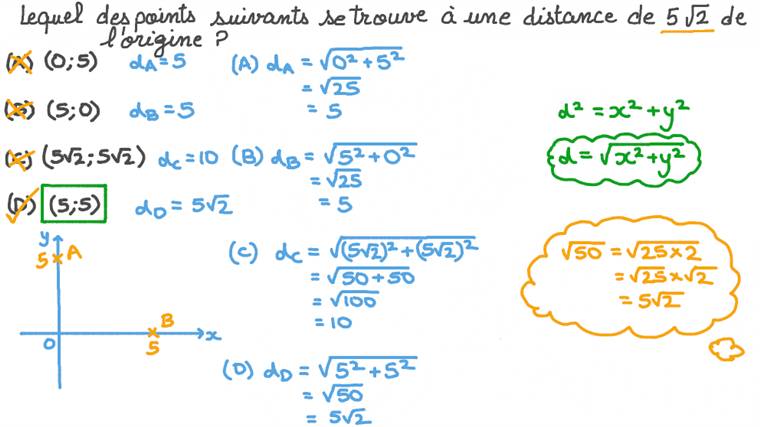 Lequel des points suivants se trouve à une distance de 5√2 de
l'origine ?
(A) (0;5) d_A = 5
(B) (5;0) d_B = 5
(C) (5√2;5√2) d_C = 10
(D) (5;5) d_D = 5√2
(A) d_A = √(0² + 5²)
= √25
= 5
(B) d_B = √(5² + 0²)
= √25
= 5
(C) d_C = √((5√2)² + (5√2)²)
= √(50 + 50)
= √100
= 10
(D) d_D = √(5² + 5²)
= √50
= 5√2
d² = x² + y²
d = √(x² + y²)
√50 = √(25 × 2)
= √25 × √2
= 5√2
y
5 A
B
0 5 x